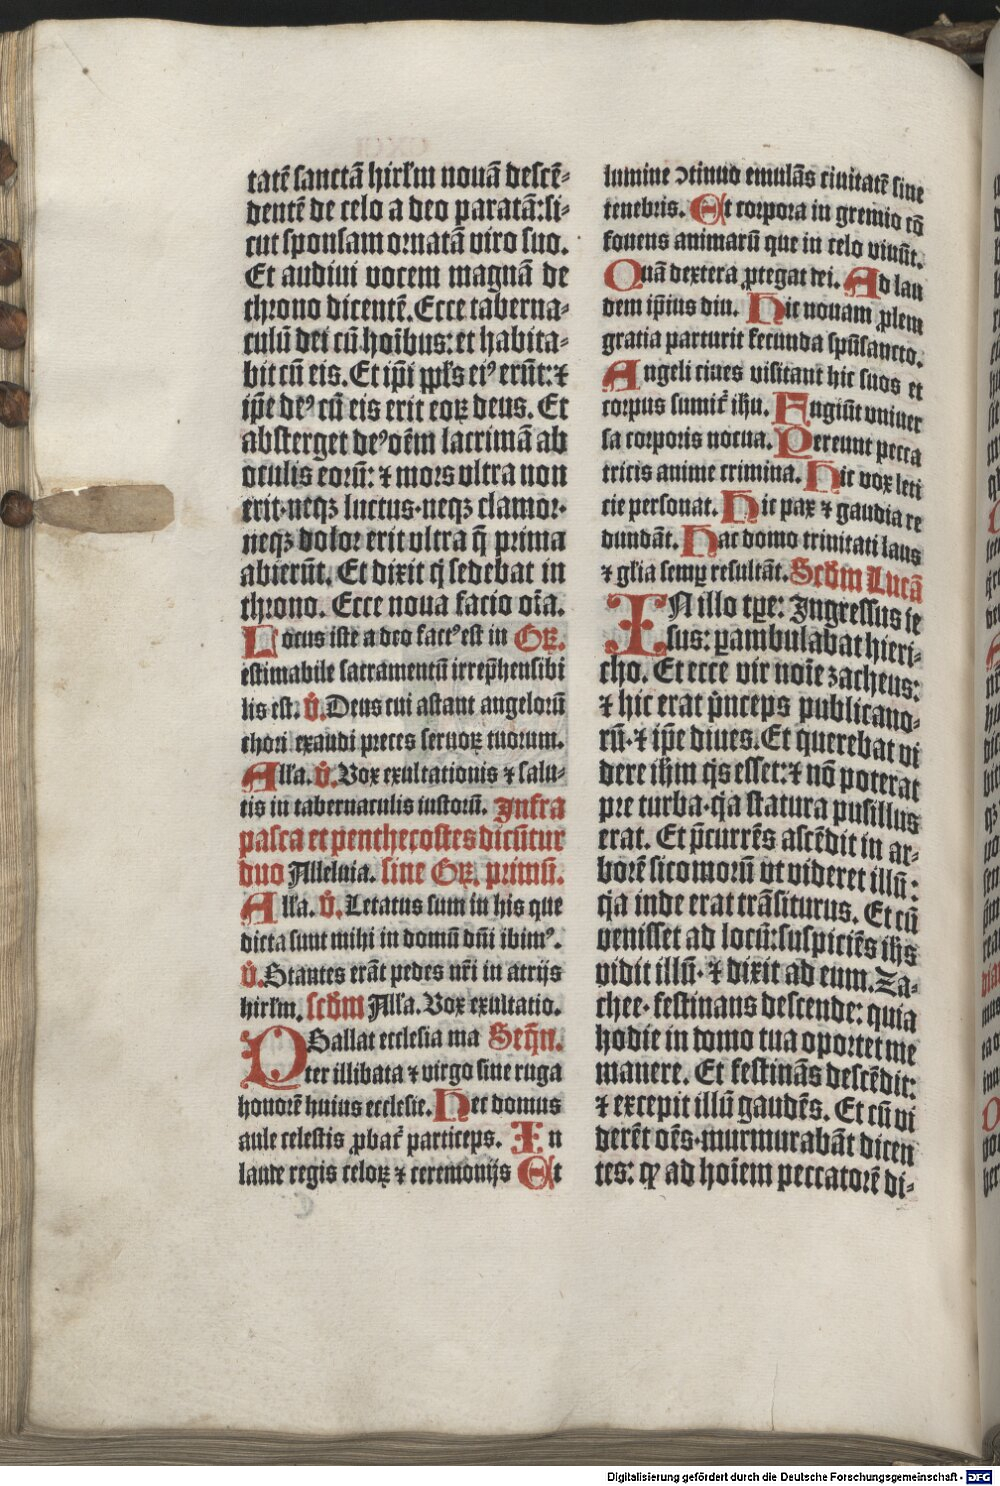 tatē sanctā hirl'm nouā descē-
dentē de celo a deo paratā: si-
cut sponsam ornatā viro suo.
Et audiui vocem magnā de
throno dicentē. Ecce taberna-
culū dei cū hoībus: et habita-
bit cū eis. Et ip̄i ppl's eiꝰ erūt: ⁊
ip̄e deꝰ cū eis erit eoꝝ deus. Et
absterget deꝰ oēm lacrimā ab
oculis eorū: ⁊ mors vltra non
erit· neqꝫ luctus· neqꝫ clamor·
neqꝫ dolor erit vltra q̄ prima
abierūt. Et dixit q̇ sedebat in
throno. Ecce noua facio oīa.
Locus iste a deo factꝰ est in Gꝝ.
estimabile sacramentū irrep̄hensibi
lis est. v̇. Deus cui astant angelorū
chori exaudi preces seruoꝝ tuorum.
All'a. v̇. Vox exultationis ⁊ salu-
tis in tabernaculis iustorū. Infra
pasca et penthecostes dicūtur
duo Alleluia. sine Gꝝ. primū.
All'a. v̇. Letatus sum in his que
dicta sunt mihi in domū dn̄i ibimꝰ.
v̇. Stantes erāt pedes nr̄i in atrijs
hirl'm. scd̄m All'a. Vox exultatio.
PSallat ecclesia ma Seq̄n.
ter illibata ⁊ virgo sine ruga
honorē huius ecclesie. Hec domus
aule celestis ꝓbat᷑ particeps. In
laude regis celoꝝ ⁊ ceremonijs Et
lumine ↄtinuo emulās ciuitatē sine
tenebris. Et corpora in gremio cō
fouens animarū que in celo viuūt.
Quā dextera ꝓtegat dei. Ad lau
dem ip̄ius diu. Hic nouam ꝓlem
gratia parturit fecunda spū sancto.
Angeli ciues visitant hic suos et
corpus sumit᷑ ihu. Fugiūt vniuer
sa corporis nocua. Pereunt pecca
tricis anime crimina. Hic vox leti
cie personat. Hic pax ⁊ gaudia re
dundāt. Hac domo trinitati laus
⁊ gl'ia semꝑ resultāt. Scd̄m Lucā
IN illo tp̄e: Ingressus ie
sus: ꝑambulabat hieri-
cho. Et ecce vir noīe zacheus:
⁊ hic erat p̄nceps publicano-
rū· ⁊ ip̄e diues. Et querebat vi
dere ih̄m q̇s esset: ⁊ nō poterat
pre turba· q̇a statura pusillus
erat. Et p̄currēs ascēdit in ar-
borē sicomorū vt videret illū:
q̇a inde erat trāsiturus. Et cū
venisset ad locū: suspiciēs ihs
vidit illū· ⁊ dixit ad eum. Za-
chee· festinans descende: quia
hodie in domo tua oportet me
manere. Et festinās descēdit:
⁊ excepit illū gaudēs. Et cū vi
derēt oēs· murmurabāt dicen
tes: ꝙ ad hoīem peccatorē di-
Digitalisierung gefördert durch die Deutsche Forschungsgemeinschaft - DFG